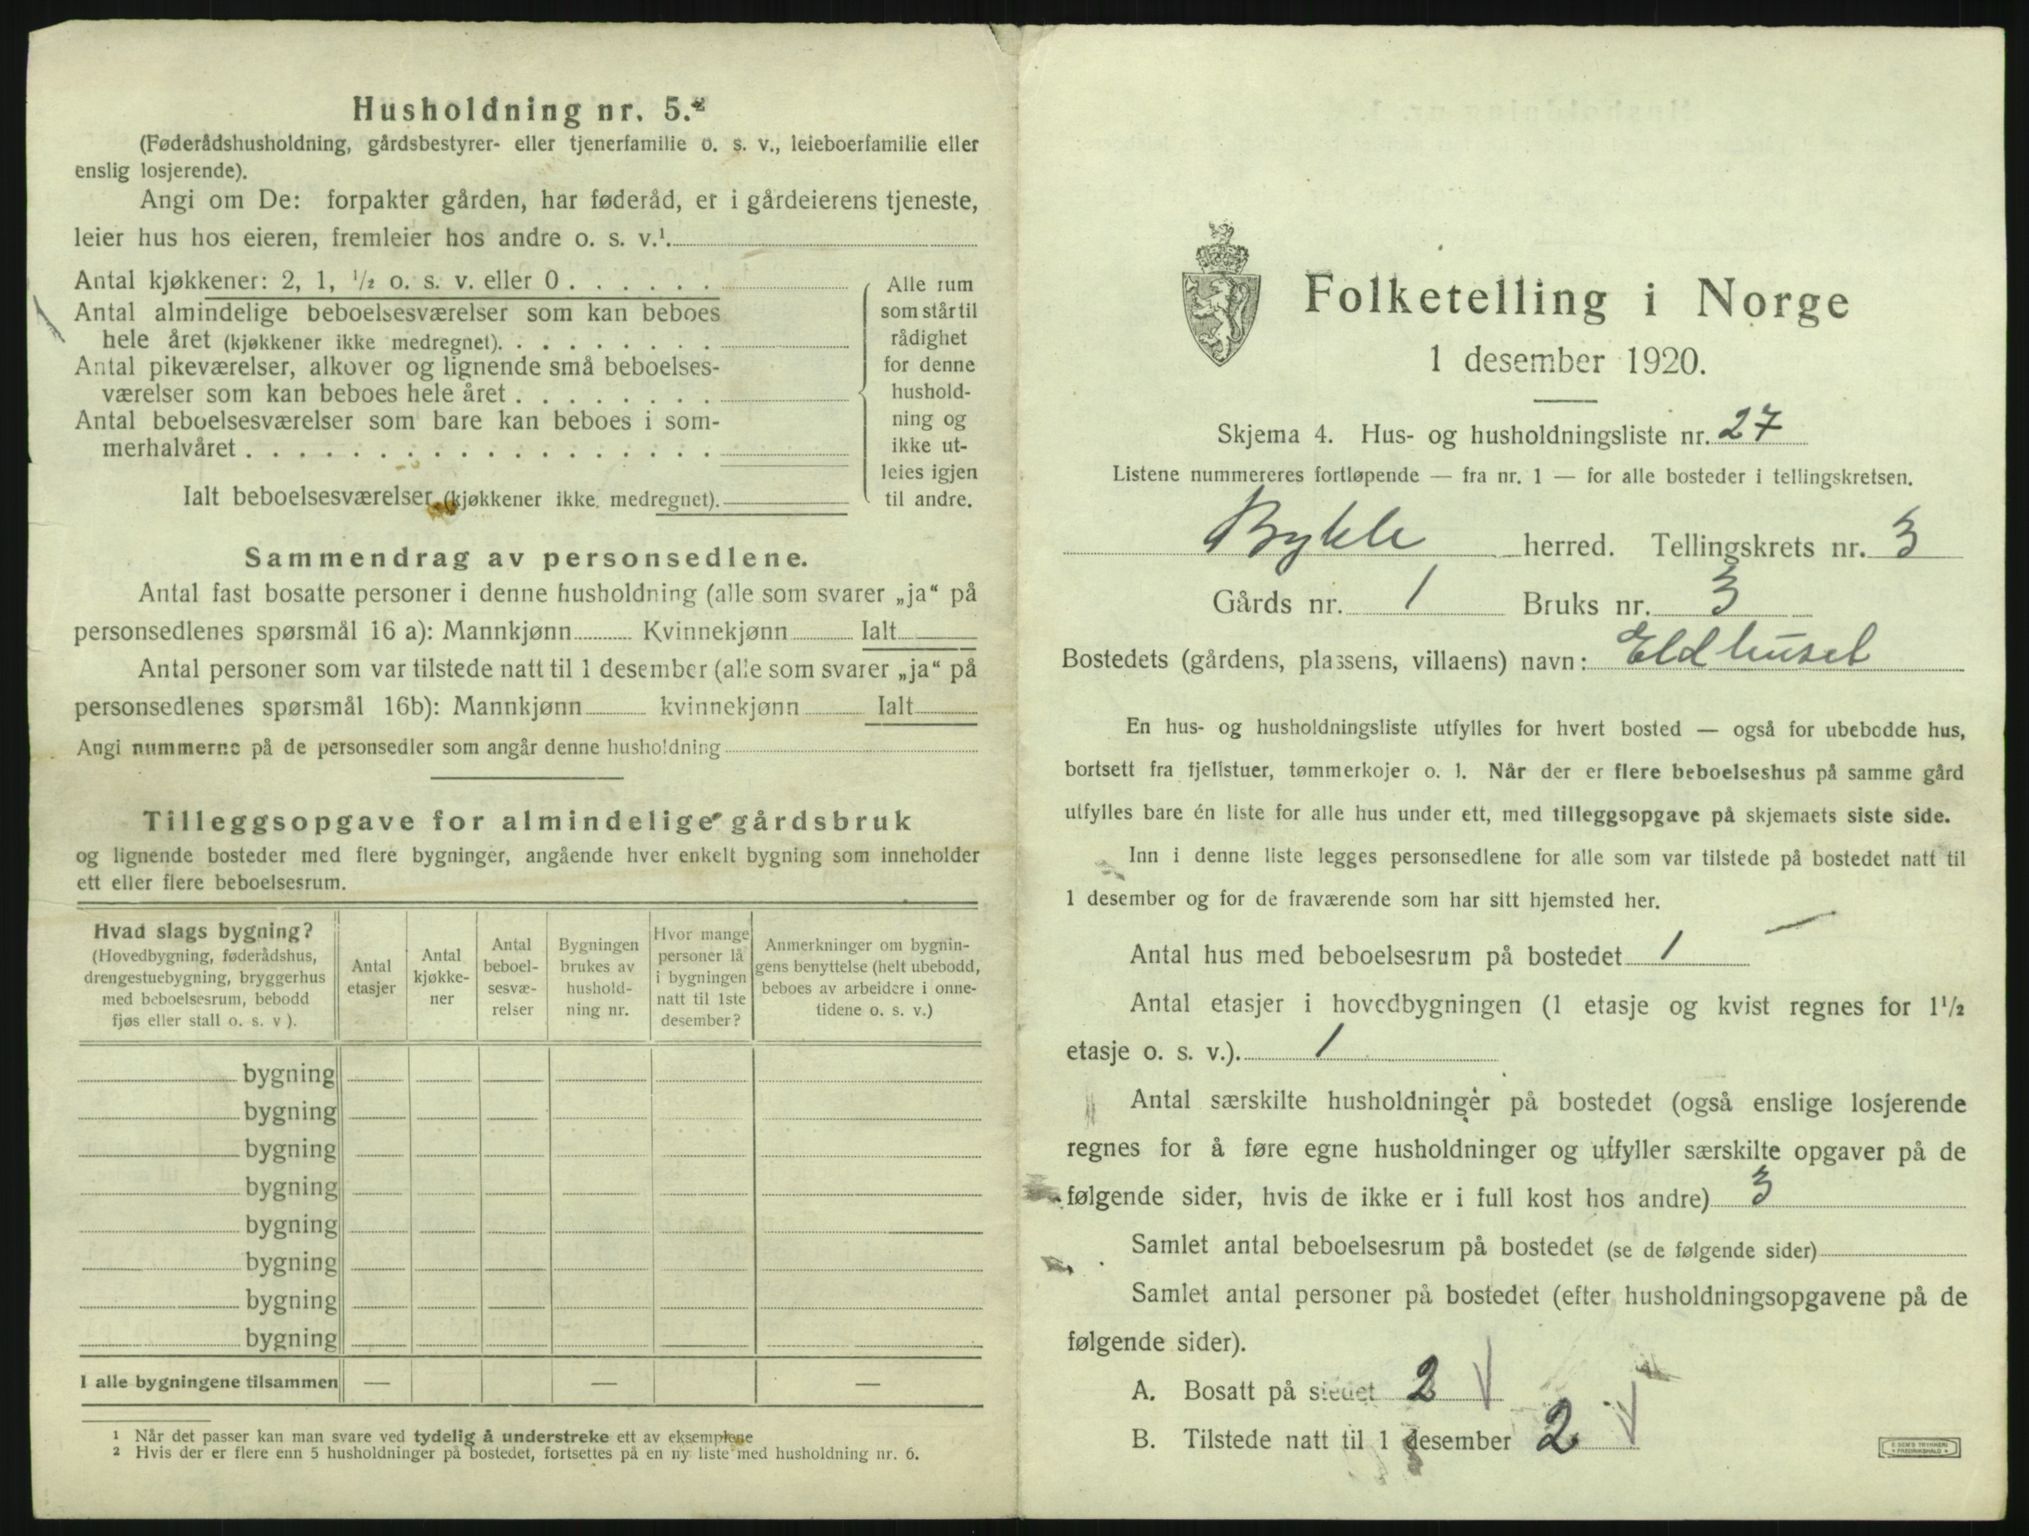 Husholdning nr. 5.²
(Føderådshusholdning, gårdsbestyrer- eller tjenerfamilie o. s. v., leieboerfamilie eller
enslig losjerende).
Angi om De: forpakter gården, har føderåd, er i gårdeierens tjeneste,
leier hus hos eieren, fremleier hos andre o. s. v.¹
Antal kjøkkener: 2, 1, ¹/₂ o. s. v. eller 0 . . . . . .
Antal almindelige beboelsesværelser som kan beboes
hele året (kjøkkener ikke medregnet). . . . . . . . .
Antal pikeværelser, alkover og lignende små beboelses-
værelser som kan beboes hele året . . . . . . . .
Antal beboelsesværelser som bare kan beboes i som-
merhalvåret . . . . . . . . . . . . . . . . . .
Ialt beboelsesværelser (kjøkkener ikke medregnet).
Alle rum
som står til
rådighet
for denne
hushold-
ning og
ikke ut-
leies igjen
til andre.
Sammendrag av personsedlene.
Antal fast bosatte personer i denne husholdning (alle som svarer „ja“ på
personsedlenes spørsmål 16 a): Mannkjønn Kvinnekjønn Ialt
Antal personer som var tilstede natt til 1 desember (alle som svarer „ja“ på
personsedlenes spørsmål 16b): Mannkjønn kvinnekjønn Ialt
Angi nummerne på de personsedler som angår denne husholdning
Tilleggsopgave for almindelige gårdsbruk
og lignende bosteder med flere bygninger, angående hver enkelt bygning som inneholder
ett eller flere beboelsesrum.
Hvad slags bygning?
(Hovedbygning, føderådshus,
drengestuebygning, bryggerhus
med beboelsesrum, bebodd
fjøs eller stall o. s. v ).
Antal
etasjer
Antal
kjøkke-
ner
Antal
beboel-
sesvæ-
relser
Bygningen
brukes av
hushold-
ning nr.
Hvor mange
personer lå
i bygningen
natt til 1ste
desember?
Anmerkninger om bygnin-
gens benyttelse (helt ubebodd,
beboes av arbeidere i onne-
tidene o. s. v.)
bygning
bygning
bygning
bygning
bygning
bygning
bygning
bygning
I alle bygningene tilsammen — — —
¹ Når det passer kan man svare ved tydelig å understreke ett av eksemplene
² Hvis der er flere enn 5 husholdninger på bostedet, fortsettes på en ny liste med husholdning nr. 6.
Folketelling i Norge
1 desember 1920.
Skjema 4. Hus- og husholdningsliste nr. 27
Listene nummereres fortløpende — fra nr. 1 — for alle bosteder i tellingskretsen.
Bykle herred. Tellingskrets nr. 3
Gårds nr. 1 Bruks nr. 3
Bostedets (gårdens, plassens, villaens) navn: Eldhuset
En hus- og husholdningsliste utfylles for hvert bosted — også for ubebodde hus,
bortsett fra fjellstuer, tømmerkojer o. l. Når der er flere beboelseshus på samme gård
utfylles bare én liste for alle hus under ett, med tilleggsopgave på skjemaets siste side.
Inn i denne liste legges personsedlene for alle som var tilstede på bostedet natt til
1 desember og for de fraværende som har sitt hjemsted her.
Antal hus med beboelsesrum på bostedet 1 —
Antal etasjer i hovedbygningen (1 etasje og kvist regnes for 1¹/₂
etasje o. s. v.). 1
Antal særskilte husholdninger på bostedet (også enslige losjerende
regnes for å føre egne husholdninger og utfyller særskilte opgaver på de
følgende sider, hvis de ikke er i full kost hos andre) 3
Samlet antal beboelsesrum på bostedet (se de følgende sider)
Samlet antal personer på bostedet (efter husholdningsopgavene på de
følgende sider).
A. Bosatt på stedet 2
B. Tilstede natt til 1 desember 2